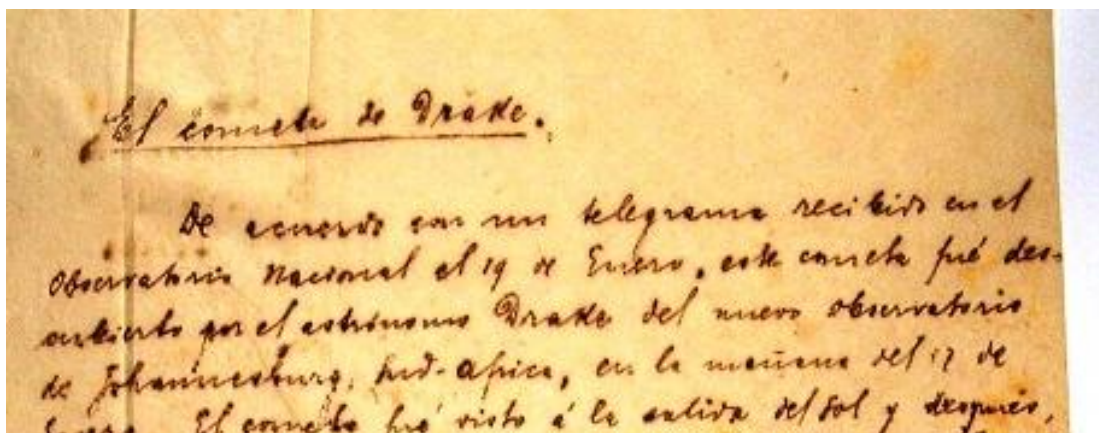 El cometa de Drake.
De acuerdo con un telegrama recibido en el
Observatorio Nacional el 19 de Enero, este cometa fué des-
cubierto por el astrónomo Drake del nuevo Observatorio
de Johannesburg, Sud-Africa, en la mañana del 17 de
Enero. El cometa fué visto á la salida del Sol y después,